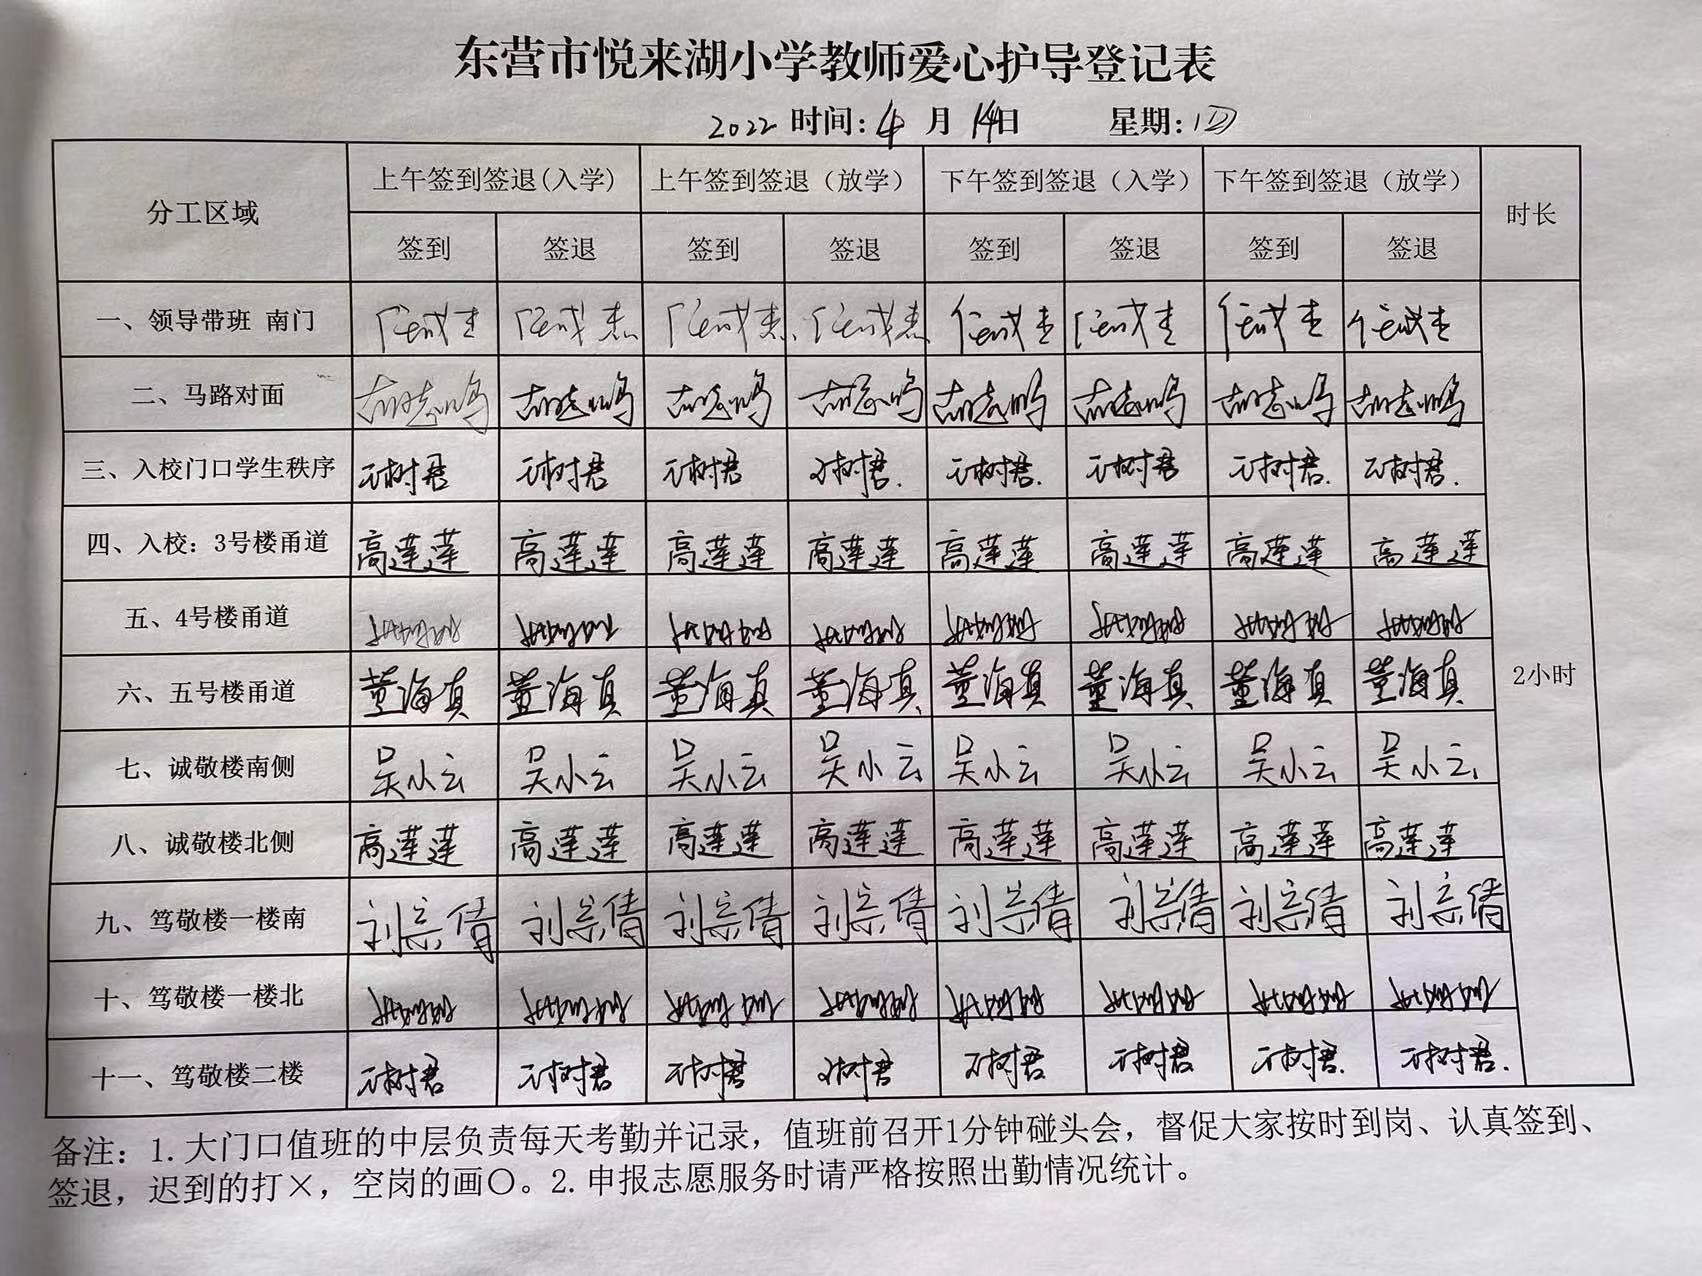 东营市悦来湖小学教师爱心护导登记表
2022 时间：4 月 14日 星期：四
分工区域 上午签到签退(入学) 上午签到签退（放学） 下午签到签退（入学） 下午签到签退（放学） 时长
签到 签退 签到 签退 签到 签退 签到 签退
一、领导带班 南门
二、马路对面 胡志鸣 胡志鸣 胡志鸣 胡志鸣 胡志鸣 胡志鸣 胡志鸣 胡志鸣
三、入校门口学生秩序 树君 树君 树君 树君 树君 树君 树君 树君
四、入校：3号楼甬道 高莲莲 高莲莲 高莲莲 高莲莲 高莲莲 高莲莲 高莲莲 高莲莲
五、4号楼甬道
六、五号楼甬道 董海真 董海真 董海真 董海真 董海真 董海真 董海真 董海真
2小时
七、诚敬楼南侧 吴小云 吴小云 吴小云 吴小云 吴小云 吴小云 吴小云 吴小云
八、诚敬楼北侧 高莲莲 高莲莲 高莲莲 高莲莲 高莲莲 高莲莲 高莲莲 高莲莲
九、笃敬楼一楼南 刘宗倩 刘宗倩 刘宗倩 刘宗倩 刘宗倩 刘宗倩 刘宗倩 刘宗倩
十、笃敬楼一楼北
十一、笃敬楼二楼 树君 树君 树君 树君 树君 树君 树君 树君
备注：1.大门口值班的中层负责每天考勤并记录，值班前召开1分钟碰头会，督促大家按时到岗、认真签到、
签退，迟到的打×，空岗的画〇。2.申报志愿服务时请严格按照出勤情况统计。